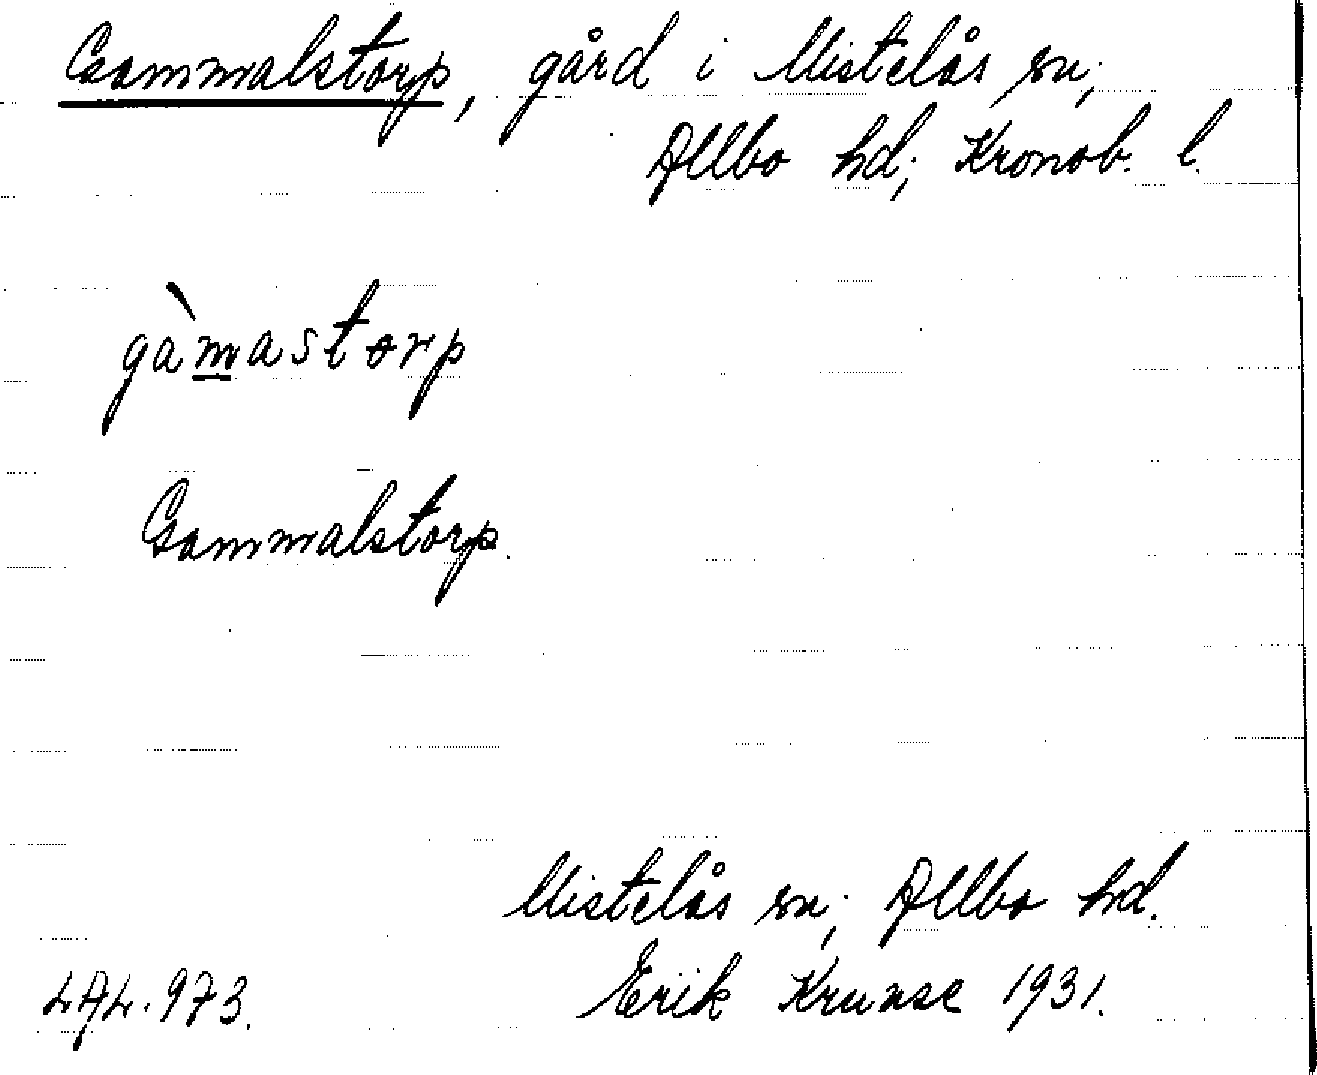 Gammalstorp, gård i Mistelås sn;
Allbo hd; Kronob. l.
gàmastorp
Gammalstorp.
Mistelås sn; Allbo hd.
Erik Kruuse 1931.